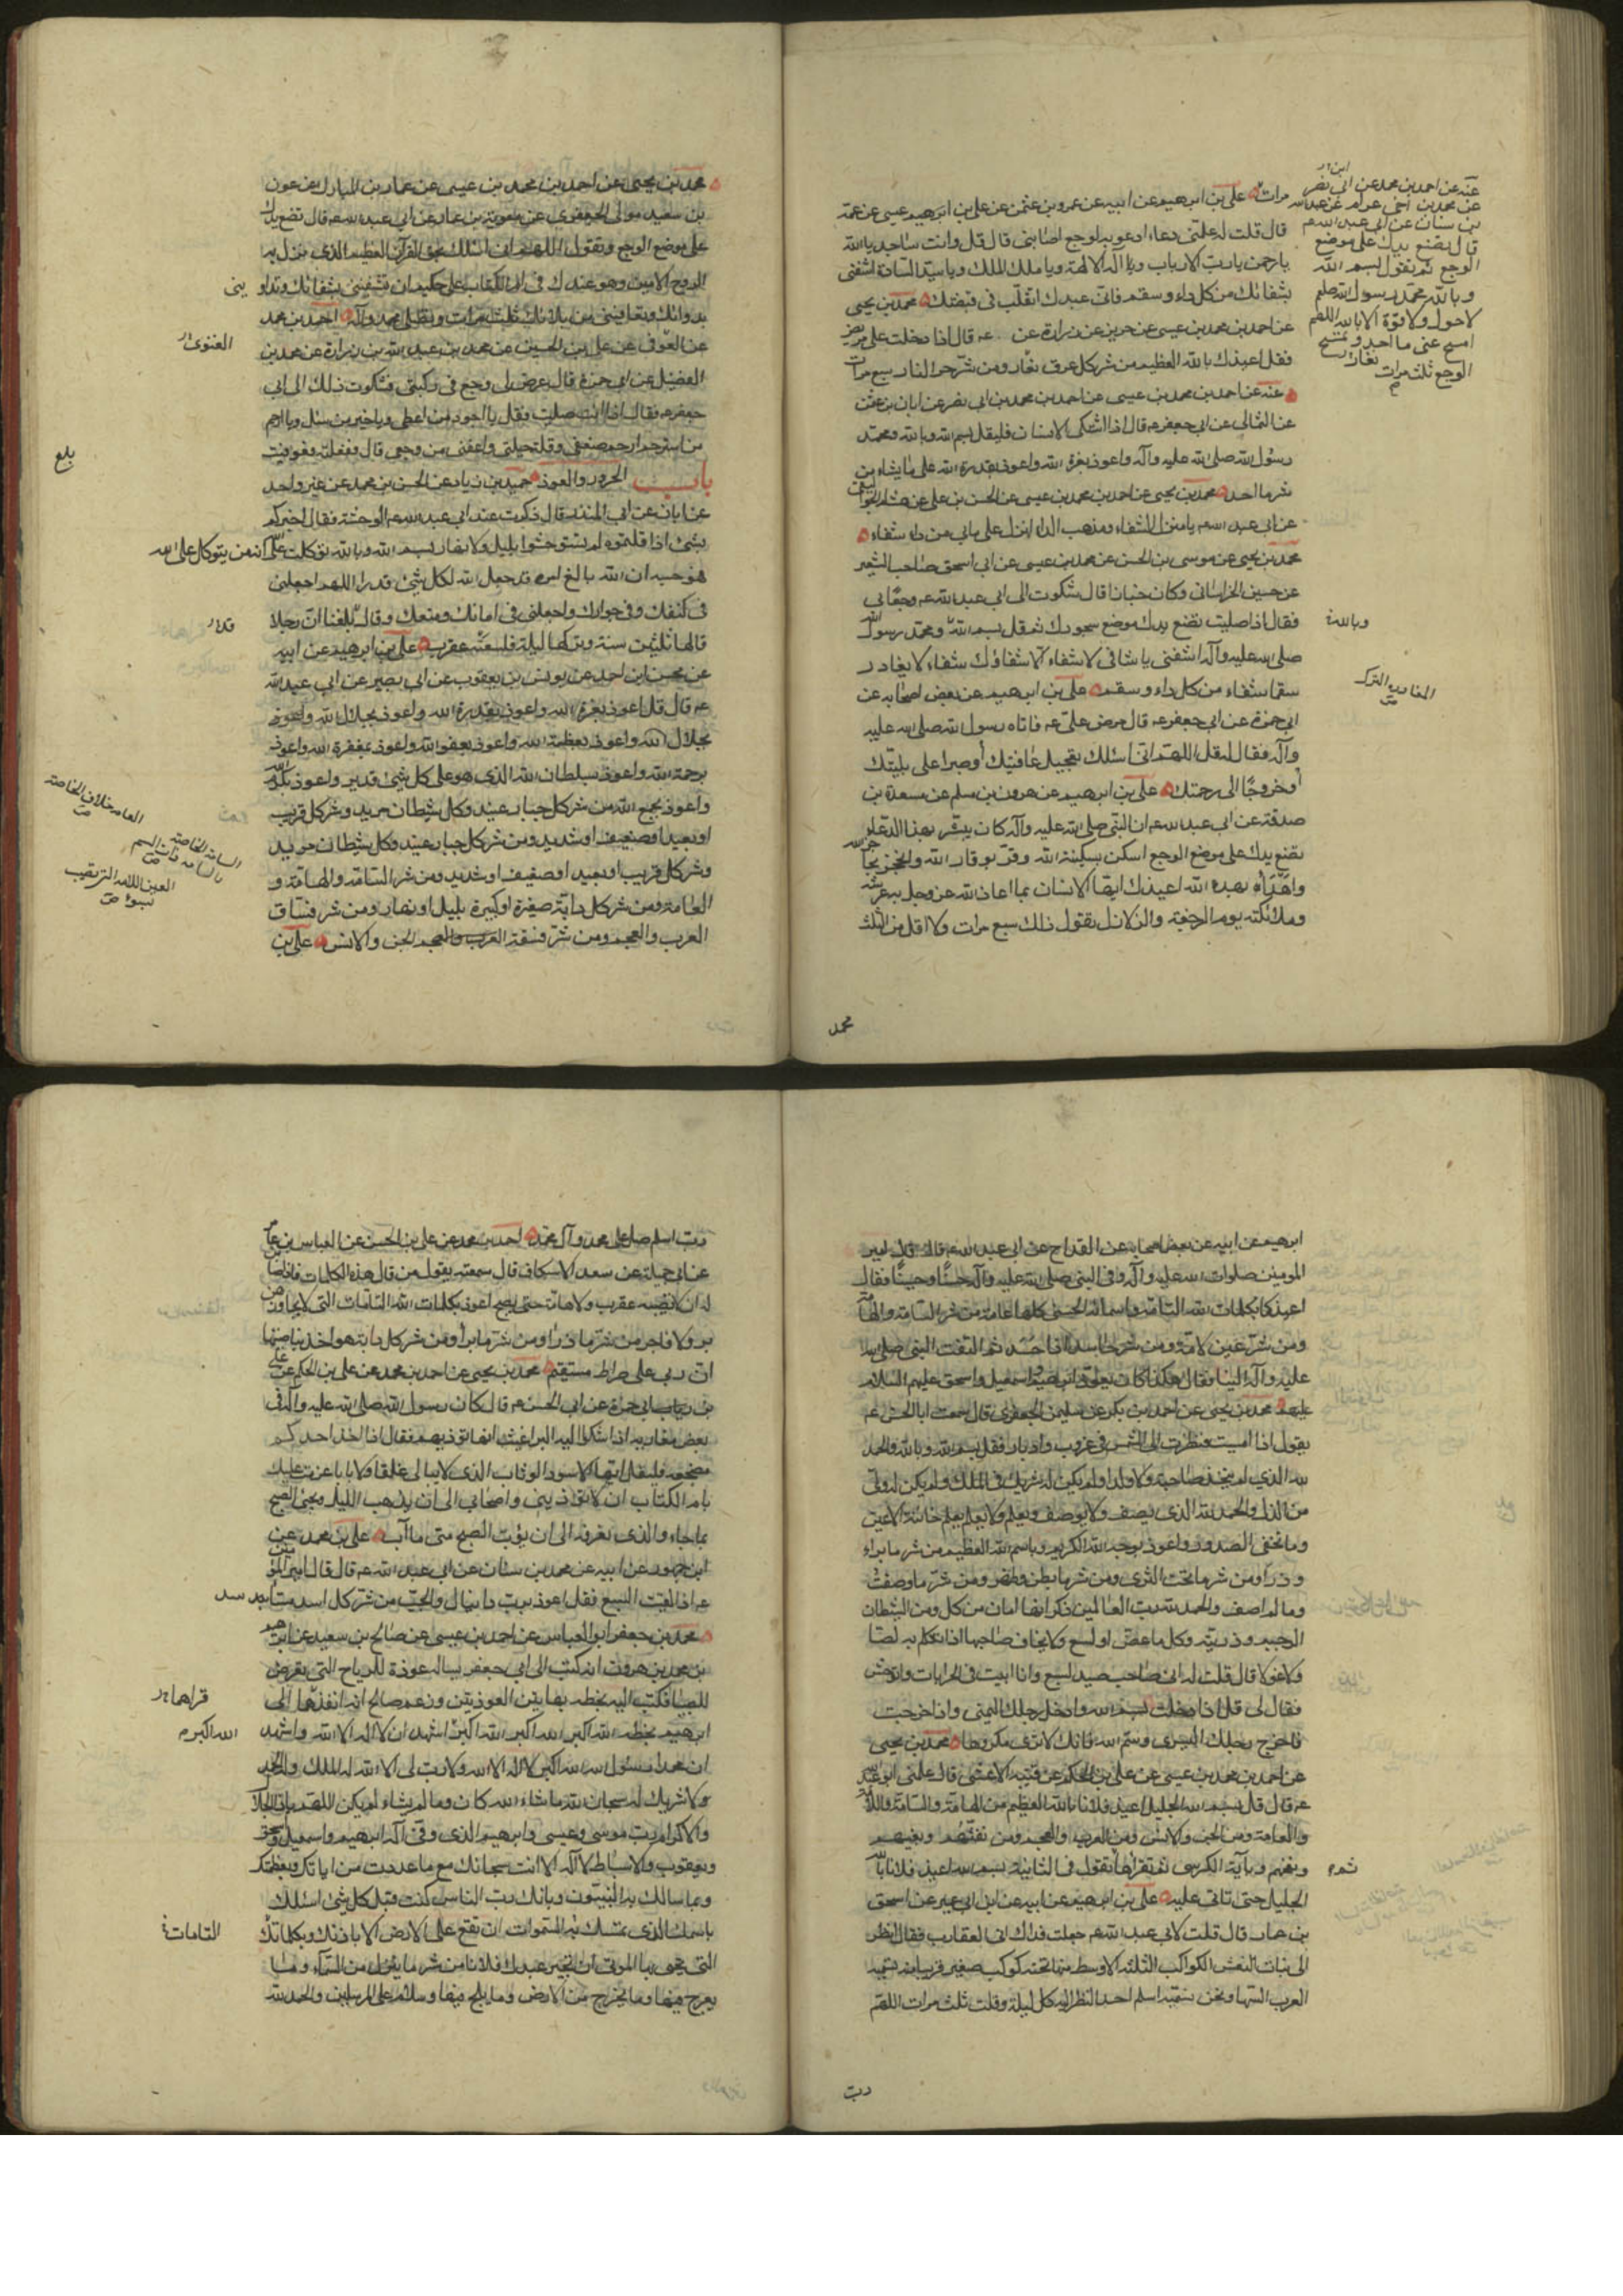 مرات علي بن ابرهيم عن ابيه عن عمرو بن عثمن عن علي بن ابرهيم عيسى عن عمه
قال قلت له علمني دعاء ادعو به لوجع اصابني قال قل وانت ساجد يا الله
يا رحمن يا رب الارباب ويا اله الالهة ويا ملك الملك ويا سيد السادة اشفني
بشفائك من كل داء وسقم فاني عبدك اتقلب في قبضتك محمد بن يحيى
عن احمد بن محمد بن عيسى عن حريز عن زرارة عن عه قال اذا دخلت على مريض
فقل اعيذك بالله العظيم من شر كل عرق نعار ومن شر حر النار سبع مرات
عنه عن احمد بن محمد بن عيسى عن احمد بن محمد بن ابي نصر عن ابان بن عثمن
عن الثمالي عن ابي جعفر عه قال اذا اشتكى الانسان فليقل بسم الله وبالله ومحمد
رسول الله صلى الله عليه وآله واعوذ بعزة الله واعوذ بقدرة الله على ما يشاء من
شر ما اجد محمد بن يحيى عن احمد بن محمد بن عيسى عن الحسن بن علي عن هشام الجواليقي
عن ابي عبد الله عه يا منزل الشفاء ومذهب الداء انزل على ما بي من داء شفاء
محمد بن يحيى عن موسى بن الحسن عن محمد بن عيسى عن ابي اسحق صاحب الشعير
عن حسين الخراساني وكان خبازا قال شكوت الى ابي عبد الله عه وجعا بي
فقال اذا صليت فضع يدك موضع سجودك ثم قل بسم الله ومحمد رسول الله
صلى الله عليه وآله اشفني يا شافي لا شفاء الا شفاؤك شفاء لا يغادر
سقما شفاء من كل داء وسقم علي بن ابرهيم عن بعض اصحابه عن
ابي حمزة عن ابي جعفر عه قال مرض علي عه فاتاه رسول الله صلى الله عليه
وآله فقال له قل اللهم اني اسئلك تعجيل عافيتك أو صبرا على بليتك
أو خروجا الى رحمتك علي بن ابرهيم عن هرون بن مسلم عن مسعدة بن
صدقة عن ابي عبد الله عه ان النبي صلى الله عليه وآله كان ينشر بهذا الدعاء
تضع يدك على موضع الوجع اسكن بسكينة الله وقر بوقار الله وانحجز بحاجز الله
واهدأ بهدء الله اعيذك ايها الانسان بما اعاذ الله عز وجل به عرشه
وملائكته يوم الرجفة والزلازل تقول ذلك سبع مرات ولا اقل من الثلث
محمد
عنه عن احمد بن محمد عن ابي نصر
عن محمد بن اخي عرام عن عبد الله
بن سنان عن ابي عبد الله عم
قال تضع يدك على موضع
الوجع ثم تقول بسم الله
وبالله محمد رسول الله صلعم
لا حول ولا قوة الا بالله اللهم
امسح عني ما اجد وتمسح
الوجع ثلث مرات
نعار
وبالله
محمد بن يحيى عن احمد بن محمد بن عيسى عن عمار بن المبارك عن عون
بن سعيد مولى الجعفري عن معوية بن عمار عن ابي عبد الله عه قال تضع يدك
على موضع الوجع وتقول اللهم اني اسئلك بحق القرآن العظيم الذي نزل به
الروح الامين وهو عندك في ام الكتاب علي حكيم ان تشفيني بشفائك وتداو
يني
بدوائك وتعافيني من بلائك ثلث مرات وتصلي على محمد وآله احمد بن محمد
عن العوفي عن علي بن الحسين عن محمد بن عبد الله بن زرارة عن محمد بن
الغنوي
الفضيل عن ابي حمزة قال عرض لي وجع في ركبتي فشكوت ذلك الى ابي
جعفر عه فقال اذا انت صليت فقل يا اجود من اعطى ويا خير من سئل ويا ارحم
من استرحم ارحم ضعفي وقلة حيلتي واعفني من وجعي قال ففعلته فعوفيت
بلغ
باب الحرز والعوذ حميد بن زياد عن الحسن بن محمد عن غير واحد
عن ابان عن ابي المنذر قال ذكرت عند ابي عبد الله عه الوحشة فقال اخبركم
بشئ اذا قلتموه لم تستوحشوا بليل ولا نهار بسم الله وبالله توكلت على الله انه من يتوكل على الله
فهو حسبه ان الله بالغ امره قد جعل الله لكل شئ قدرا اللهم اجعلني
في كنفك وفي جوارك واجعلني في امانك ومنعك وقال بلغنا ان رجلا
قالها ثلثين سنة وتركها ليلة فلسعته عقرب علي بن ابرهيم عن ابيه
عن محسن ابن احمد عن يونس بن يعقوب عن ابي بصير عن ابي عبد الله
عه قال قل اعوذ بعزة الله واعوذ بقدرة الله واعوذ بجلال الله واعوذ
بجلال الله واعوذ بعظمة الله واعوذ بعفو الله واعوذ بمغفرة الله واعوذ
برحمة الله واعوذ بسلطان الله الذي هو على كل شئ قدير واعوذ بكرم الله
واعوذ بجمع الله من شر كل جبار عنيد وكل شيطان مريد وشر كل قريب
او بعيد او ضعيف او شديد ومن شر كل جبار عنيد وكل شيطان مريد
وشر كل قريب او بعيد او ضعيف او شديد ومن شر السامة والهامة و
العامة ومن شر كل دابة صغيرة او كبيرة بليل او نهار ومن شر فساق
العرب والعجم ومن شر فسقة العرب والعجم الجن والانس علي بن
العامة خلاف الخاصة
ابرهيم عن ابيه عن بعض اصحابه عن القداح عن ابي عبد الله عه قال قال امير
المومنين صلوات الله عليه وآله رقى النبي صلى الله عليه وآله حسنا وحسينا فقال
اعيذكما بكلمات الله التامة واسمائه الحسنى كلها عامة من شر السامة والهامة
ومن شر عين لامة ومن شر حاسد اذا حسد ثم التفت النبي صلى الله
عليه وآله الينا فقال هكذا كان يعوذ ابرهيم اسمعيل واسحق عليهم السلام
محمد بن يحيى عن احمد بن بكر عن سليمن الجعفري قال سمعت ابا الحسن عه
يقول اذا امسيت فنظرت الى الشمس في غروب وادبار فقل بسم الله وبالله والحمد
لله الذي لم يتخذ صاحبة ولا ولدا ولم يكن له شريك في الملك ولم يكن له ولي
من الذل والحمد لله الذي يصف ولا يوصف ويعلم ولا يعلم يعلم خائنة الاعين
وما تخفى الصدور واعوذ بوجه الله الكريم وباسم الله العظيم من شر ما براء
وذرأ ومن شر ما تحت الثرى ومن شر ما بطن وظهر ومن شر ما وصفت
وما لم اصف والحمد لله رب العالمين ذكر انها امان من كل ومن الشيطان
الرجيم وذريته وكل ما عض او لسع ولا يخاف صاحبها اذا تكلم به لصا
ولا غولا قال قلت له اني صاحب صيد لسبع وانا ابيت في الخرابات واتوحش
فقال لي قل اذا دخلت بسم الله وادخل رجلك اليمنى واذا خرجت
فاخرج رجلك اليسرى وسم الله فانك لا ترى مكروها محمد بن يحيى
عن احمد بن محمد بن عيسى عن علي بن الحكم عن قتيبة الاعشى قال علمني ابو عبد الله
عه قال قل بسم الله الجليل اعيذ فلانا بالله العظيم من الهامة والسامة واللامة
والعامة ومن الجن والانس ومن العرب والعجم ومن نفثهم وبغيهم
ونفخهم وبآية الكرسي ثم تقرأها تقول في الثانية بسم الله اعيذ فلانا بالله
الجليل حتى تاتي عليه علي بن ابرهيم عن ابيه عن ابن ابي عمير عن اسحق
بن عمار قال قلت لابي عبد الله عه جعلت فداك اني اخاف العقارب فقال انظر
الى بنات النعش الكواكب الثلثة الاوسط منها تحته كوكب صغير قريبا منه تسميه
العرب السها ونحن نسميه اسلم احد النظر اليه كل ليلة وقلت ثلث مرات اللهم
رب
رب اسلم صل على محمد وآل محمد احمد بن محمد عن علي بن الحسن عن العباس بن عامر
عن ابي جميلة عن سعد الاسكاف قال سمعته يقول من قال هذه الكلمات فانا ضامن
له ان لا تصيبه عقرب ولا هامة حتى يصبح اعوذ بكلمات الله التامات التي لا يجاوزهن
بر ولا فاجر من شر ما ذرأ ومن شر ما برأ ومن شر كل دابة هو اخذ بناصيتها
ان ربي على صراط مستقيم محمد بن يحيى عن احمد بن محمد عن علي بن الحكم عن علي
بن ابي حمزة عن ابي الحسن عه قال كان رسول الله صلى الله عليه وآله في
بعض مغازيه اذا شكوا اليه البراغيث انها تؤذيهم فقال اذا اخذ احدكم
مضجعه فليقل ايها الاسود الوثاب الذي لا يبالي غلقا ولا بابا عزمت عليك
بام الكتاب ان لا تؤذيني واصحابي الى ان يذهب الليل ويجئ الصبح
بما جاء والذي نعرفه الى ان يؤب الصبح متى ما آب علي بن محمد عن
ابن جمهور عن ابيه عن محمد بن سنان عن ابي عبد الله عه قال قال امير المؤمنين
عه اذا لقيت السبع فقل اعوذ برب دانيال والجب من شر كل اسد مستاسد
محمد بن جعفر ابو العباس عن احمد بن عيسى عن صالح بن سعيد عن ابرهيم
بن محمد بن هرون انه كتب الى ابي جعفر يساله عوذة للرياح التي تعرض
للصبيان فكتب اليه بخطه بهاتين العوذتين وزعم صالح انه انفذها الى
ابرهيم بخطه الله اكبر الله اكبر الله اكبر اشهد ان لا اله الا الله واشهد
الله اكبر
ان محمدا رسول الله الله اكبر لا اله الا الله ولا رب لي الا الله له الملك وله الحمد
ولا شريك له سبحان الله ما شاء الله كان وما لم يشاء لم يكن اللهم يا ذا الجلال
والاكرام رب موسى وعيسى وابرهيم الذي وفى اله ابرهيم واسمعيل واسحق
ويعقوب والاسباط لا اله الا انت سبحانك مع ما عددت من اياتك وبعظمتك
وبما سالك به النبيون وبانك رب الناس كنت قبل كل شئ اسئلك
باسمك الذي تمسك به السموات ان تقع على الارض الا باذنك وبكلماتك
التامات
التي تحيي بها الموتى ان تجير عبدك فلانا من شر ما ينزل من السماء وما
يعرج فيها وما يخرج من الارض وما يلج فيها وسلام على المرسلين والحمد لله